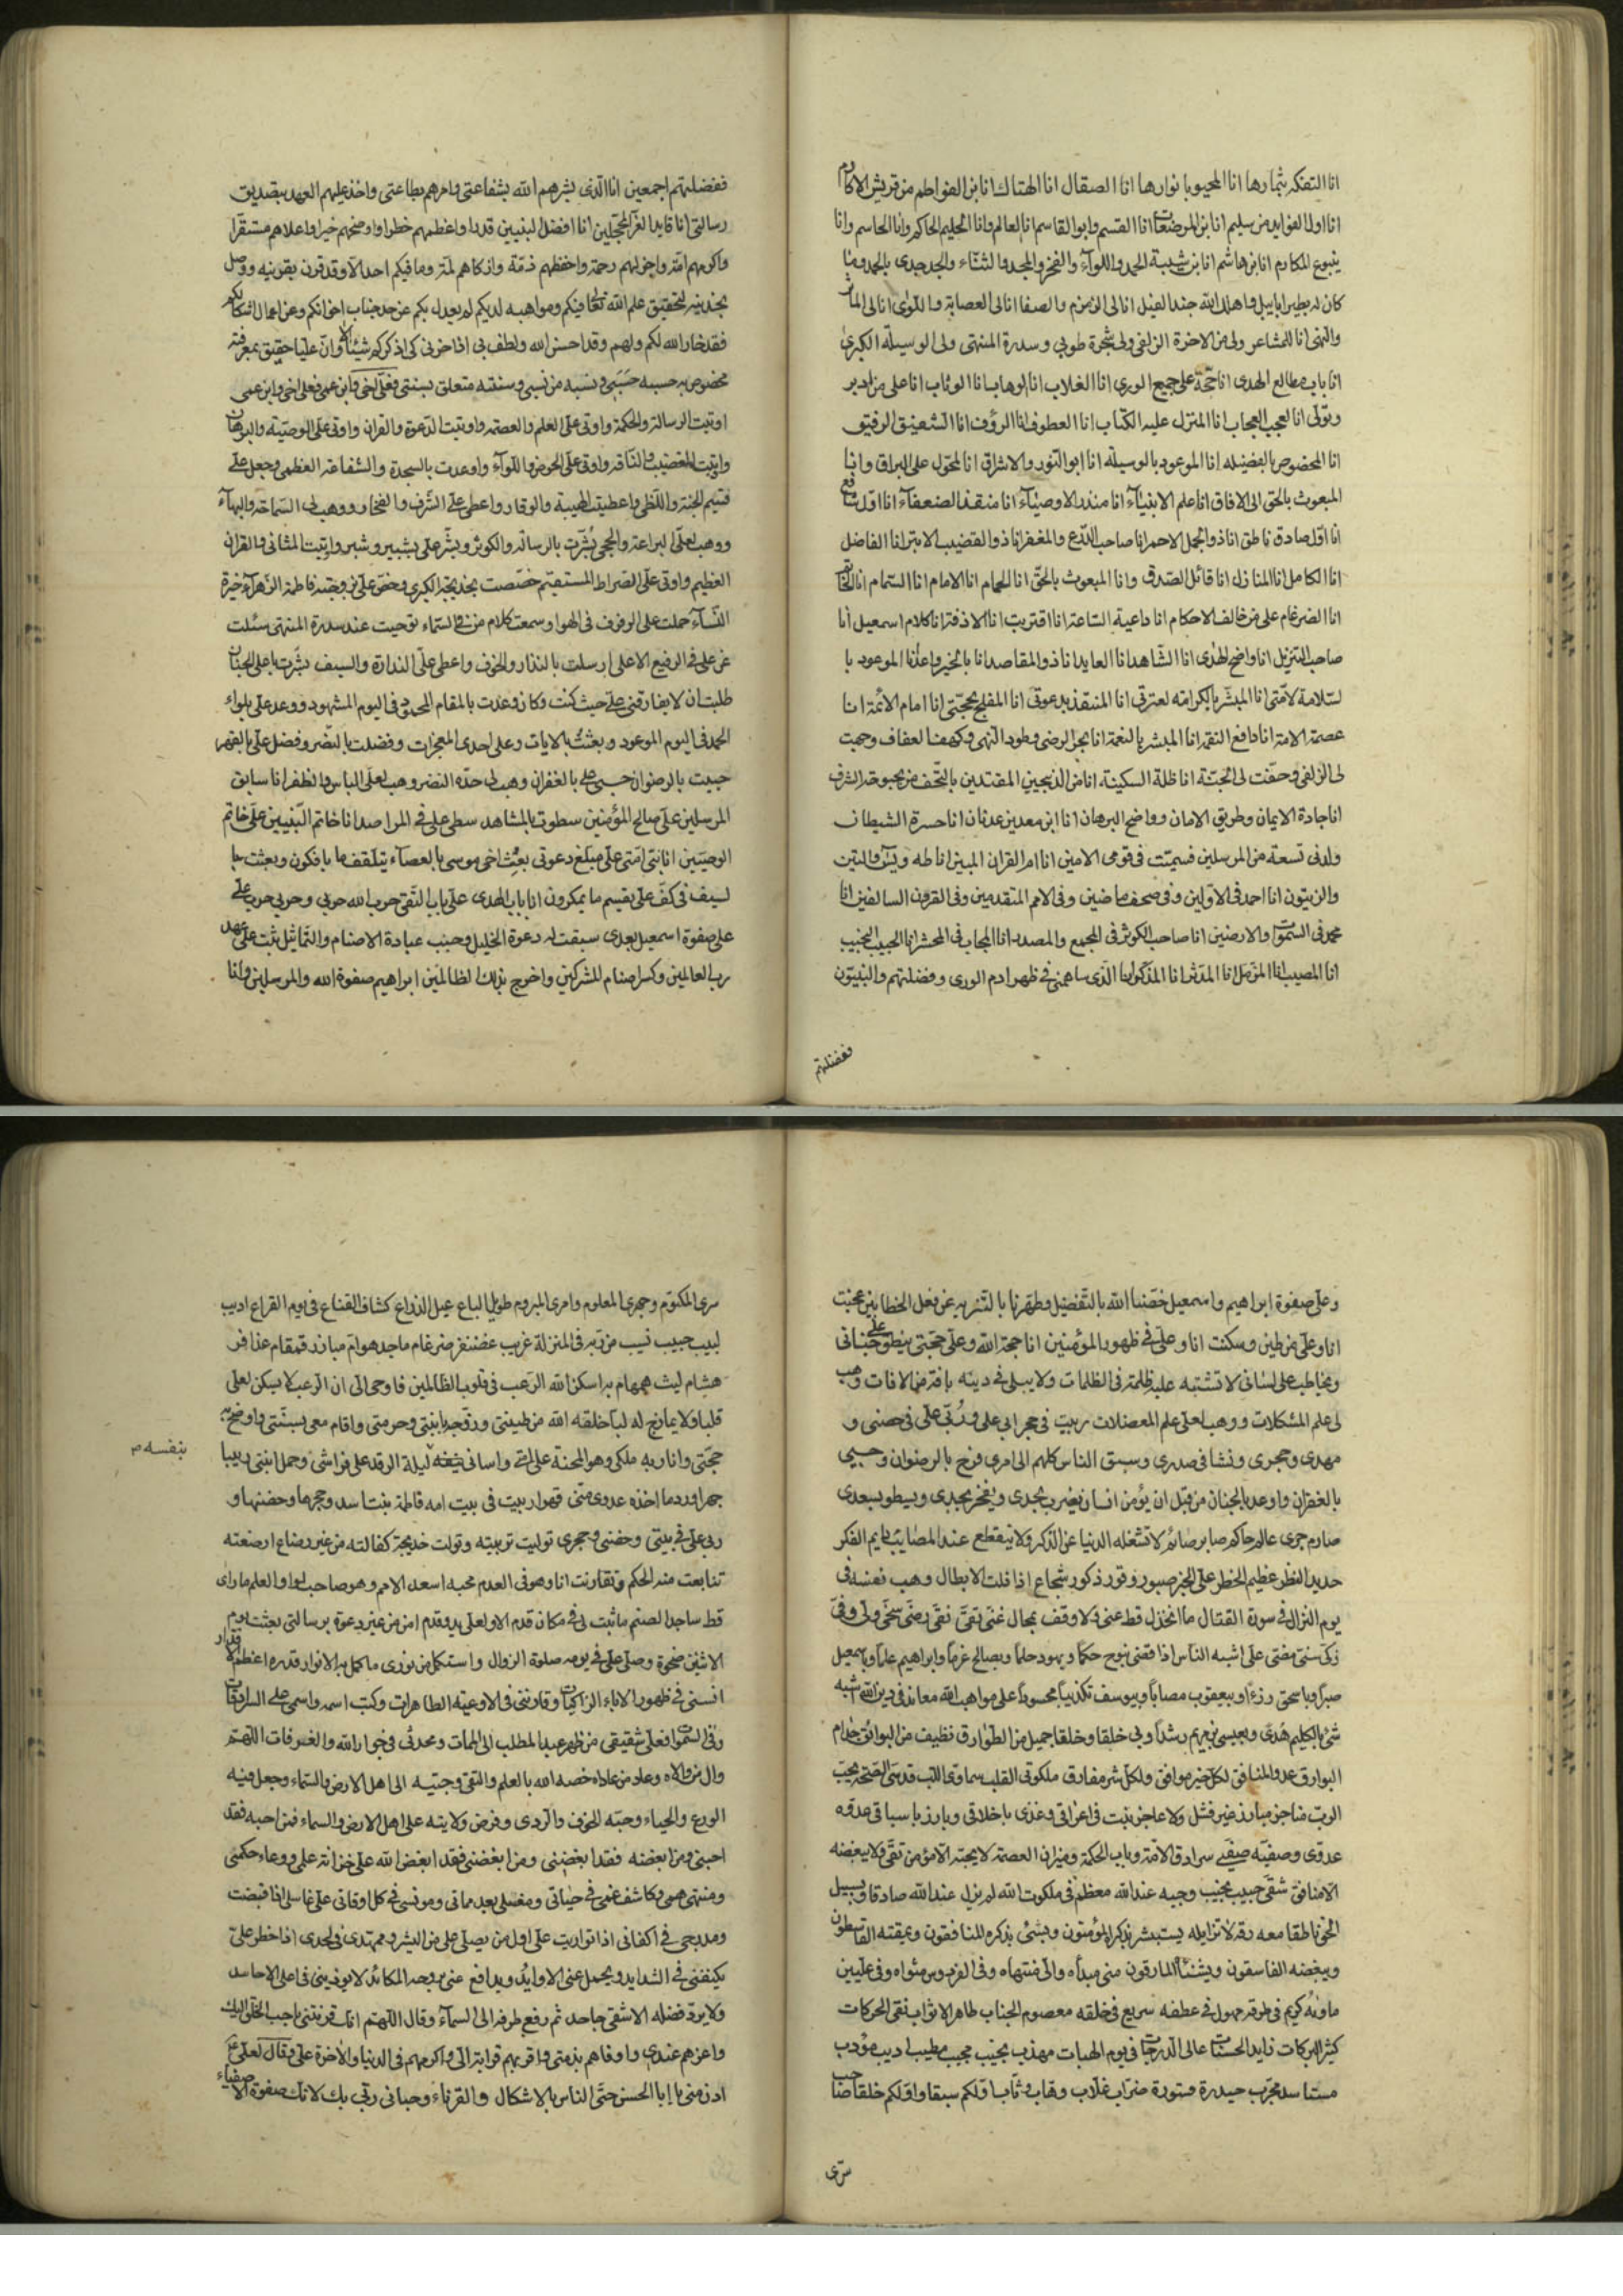 انا التفكه بثمارها انا المحبو بانوارها انا الصقال انا الهتاك انا بن الفواطم من قريش الاكارم
انا اولا الفوايد من سليم انا بن المرضعات انا القسم وابو القاسم انا العالم وانا الحليم الحاكم وانا الحاسم وانا
ينبوع المكارم انا بن هاشم انا بن شيبة الحمد واللوآء والفخر والمجد والثناء والجد جدى بالحمد وما
كان له بطير ابابيل واهلك الله جند الفيل انا لى الزمزم والصفا انا لى العصابة واللوى انا لى الماثر
والنهى انا للمشاعر ولى من الاخرة الزلفى ولى شجرة طوبى وسدرة المنتهى ولى الوسيلة الكبرى
انا باب مطالع الهدى انا حجة على جميع الورى انا الغلاب انا الوهاب انا الوثاب انا على من ادبر
وتولى انا العجب العجاب انا المنزل عليه الكتاب انا العطوف انا الرؤف انا الشفيق الرفيق
انا المخصوص بالفضيله انا الموعود بالوسيلة انا ابو النور والاشراق انا المحمول على البراق وانا
المبعوث بالحق الى الافاق انا علم الانبيآء انا منذر الاوصيآء انا منقذ الضعفآء انا اول شافع
انا اول صادق ناطق انا ذو الجمل الاحمر انا صاحب الدرع والمغفر انا ذو القضيب الابتر انا الفاضل
انا الكامل انا المنازل انا قائل الصدق وانا المبعوث بالحق انا الحمام انا الامام انا السمام انا الخاتم
انا الضرغام على من خالف الاحكام انا داعية الساعة انا اقتربت انا الازفة انا كلام اسمعيل انا
صاحب التنزيل انا واضح الهدى انا الشاهد انا العابد انا ذو المقاصد انا بالخير واعد انا الموعود با
لسلامة لامتى انا المبشر بالكرامه لعترتى انا المنتقذ بدعوتى انا المفلج بحجتى انا امام الائمة انا
عصمة الامة انا دافع النقمة انا المبشر بالنعمة انا بحر الرضى وطود النهى وكهف العفاف وحبت
لى الزلفى وحفت لى الجنة انا ظلة السكينة انا من الذبيحين المفتدين بالتحف من بحبوحة الشرف
انا جادة الايمان وطريق الامان وواضح البرهان انا ابن معد بن عدنان انا حسرة الشيطان
ولدنى تسعة من المرسلين فسميت فى قومى الامين انا ام القران المبين انا طه ويس والتين
والزيتون انا احمد فى الاولين وفى صحف ماضين وفى الامم المتقدمين وفى القرون السالفين انا
محمد فى السموات والارضين انا صاحب الكوثر فى المجمع والمصدر انا المجاب فى المحشر انا الحبيب المجيب
انا المصيب انا المزمل انا المدثر انا المذكر انا الذى ساهمنى فى ظهر ادم الورى وفضلتهم والنبيون
ففضلتهم
ففضلتهم اجمعين انا الذى بشرهم الله بشفاعتى وامرهم بطاعتى واخذ عليهم العهد بتصديق
رسالتى انا قايد الغر المحجلين انا افضل النبيين قدرا واعظمهم خطرا واوضحهم خيرا واعلاهم مستقرا
واكرمهم امة واجزلهم رحمة واحفظهم ذمة وازكاهم لمة وما فيكم احد الا وقد قرن بقرينه ووصل
بخدينه لتحقيق علم الله تعالى فيكم ومواهبه لديكم لم يعدل بكم عن جناب اخوانكم وعن اعمال اشكالكم
فقد خار الله لكم ولهم وقد احسن الله ولطف بى اذ اخرنى كى اذكركم شيئا الا وان عليا حقيق بمعرفته
مخصوص به حسبه حسبى ونسبه من نسبى وسنته متعلق بسنتى فعلى اخى وابن عمى فعلى اخى وابن عمى
اوتيت الرسالة والحكمة واوتى على العلم والعصمة واوتيت الدعوة والقران واوتى على الوصية والبرهان
واوتيت القضيب والناقة واوتى على الحوض واللوآء واوعدت بالسجدة والشفاعة العظمى وجعل على
قسيم الجنة واللظى واعطيت الهيبة والوقار واعطى على الشرف والفخار ووهب لى السماحة والبهآء
ووهب لعلى البراعة والحجى بشرت بالرسالة والكوثر وبشر على بشبير وشبر واوتيت المثانى والقران
العظيم واوتى على الصراط المستقيم خصصت بخديجة الكبرى وخص على بزوجته فاطمة الزهرآء خيرة
النسآء حملت على الرفرف فى الهوا وسمعت كلام من فى السماء توحيت عند سدرة المنتهى سئلت
عن على فى الرفيع الاعلى ارسلت بالنذار والخوف واعطى على النذارة والسيف بشرت باعلى الجنان
طلبت ان لا يفارقنى على حيث كنت وكان وعدت بالمقام المحمود فى اليوم المشهود ووعد على بلواء
الحمد فى اليوم الموعود وبعثت بالايات وعلى احدى المعجزات وفضلت بالنصر وفضل على بالقهر
حبيت بالرضوان حبى على بالغفران وهب لى حدة النضر وهب لعلى الباس والظفر انا سابق
المرسلين على صالح المؤمنين سطوت بالمشاهد سطى على فى المراصد انا خاتم النبيين على خاتم
الوصيين انا نبى امتى على مبلغ دعوتى بعث اخى موسى بالعصآء يتلقف ما يافكون وبعثت با
لسيف فى كف على يقسم ما يمكرون انا باب الهدى على باب التقى حرب الله حربى وحربى حرب على
على صفوة اسمعيل بعدى سبقت له دعوة الخليل وجنب عبادة الاصنام والتماثيل ثبت على عهد
رب العالمين وكسر اصنام المشركين واخرج بذلك الظالمين ابراهيم صفوة الله والمرسلين وانا
وعلى صفوة ابراهيم واسمعيل خصنا الله بالتفضيل وطهرنا بالتنزيه عن فعل الخطايين عجنت
انا وعلى من طين وسكنت انا وعلى فى ظهور المؤمنين انا حجة الله وعلى حجتى ينطق على جنانى
ويخاطب على لسانى لا تشتبه عليه ظلمة فى الظلمات ولا يبلى فى دينه بافة من الافات وهب
لى علم المشكلات ووهب لعلى علم المعضلات ربيت فى حجر ابى على وربى على فى حضنى و
مهدى وحجرى ونشا فى صدرى وسبق الناس كلهم الى امرى فرح بالرضوان وحبى
بالغفران واوعد بالجنان من قبل ان يؤمن انسان يضرب بحدى ويفخر بجدى ويسطو بسعدى
صارم جرى عالم حاكم صابر صائم لا تشغله الدنيا عن الذكر ولا ينقطع عند المصايب دايم الفكر
حديد النظر عظيم الخطر على الخبر صبور وقور ذكور شجاع اذا قلت الابطال وهب نفسه فى
يوم النزال فى سورة القتال ما انخزل قط عنى ولا وقف بحال غنى تقى نقى رضى سخى ولى وفى
زكى سنى مضى على اشبه الناس اذا قضى بنوح حكما وبهود حلما وبصالح عزما وبابراهيم علما وباسمعيل
صبرا وباسحق رزءا وبيعقوب مصابا وبيوسف تكذيبا محسودا على مواهب الله معاند فى دين الله اشبه
شئ بالكليم هدى وبعيسى بن مريم رشدا وبى خلقا وخلقا جميل من الطوارق نظيف من البوائق خدام
البوارق عدو المنافق لكل خير موافق ولكل شر مفارق ملكوتى القلب سماوى اللب قدسى الصحبة يحب
الرب مناجز مبارز غير فشل ولا عاجز نبت فى اعراقى وغذى باخلاقى وبارز باسيافى عدوه
عدوى وصفيه صفيى سرادق الامة وباب الحكمة وميزان العصمة لا يحبه الا مؤمن تقى ولا يبغضه
الا منافق شقى حبيب نجيب وجيه عند الله معظم فى ملكوت الله لم يزل عند الله صادقا وبسبيل
الحق ناطقا معه رقه لا تزايله يستبشر بذكره المؤمنون ويسئ بذكره المنافقون ويمقته القاسطون
ويبغضه الفاسقون ويشنأه المارقون منى مبدأه والى منتهاه وفى الفردوس مثواه وفى عليين
ماواه كريم فى طرقه مهول فى عطفه سريع فى خلقه معصوم الجناب طاهر الاثواب نقى الحركات
كثير البركات زايد الحسنات عالى الدرجات فى يوم الهبات مهذب نجيب مجيب مطيب اديب مؤدب
مستاسد مجرب حيدرة قسورة ضراب غلاب وهاب وثاب اولكم سبقا واولكم خلقا صاحب
سرى
سرى المكتوم وجهرى المعلوم وامرى المبروم طويل الباع عبل الذراع كشاف القناع فى يوم القراع اديب
لبيب حبيب نسيب من ربه فى المنزلة غريب غضنفر ضرغام ماجد هوام مبارز قمقام عذافر
هشام ليث همهام به اسكن الله الرعب فى قلوب الظالمين فاوحى الى ان الرعب لا يسكن لعلى
قلبا ولا يمازج له لبا خلقه الله من طينتى وزوجه بابنتى وحرمتى واقام معى بسنتى واوضح به
حجتى وانار به ملكى وهو المحنة على امتى واسانى بنفسه ليلة الرقد على فراشى وحمل ابنتى زينبا
جهرا ورد ما اخذه عدوى منى قهرا ربيت فى بيت امه فاطمة بنت اسد وحجرها وحضنها و
ربى على فى بيتى وحضنى وحجرى توليت تربيته وتولت خديجة كفالته من غير رضاع ارضعته
تتابعت منه الحكم وتقارنت انا وهو فى العدم محبه اسعد الامم وهو صاحب لوا والعلم ما راى
قط ساجدا لصنم ما ثبت لى فى مكان قدم الا ولعلى يد وقدم امن من غير دعوة برسالتى بعثت يوم
الاثنين ضحوة وصلى على فى يومه صلوة الزوال واستكمل من نورى ما كمل به الانوار قدره اعظم الاقدار
انسنى فى ظهور الاباء الزاكيات وقارننى فى الاوعية الطاهرات وكتب اسمه واسمى على السرادقات
وفى السموات فعلى شقيقى من ظهر عبد المطلب الى الممات ومحدثى فى جوار الله والغرفات اللهم
وال من والاه وعاد من عاداه خصه الله بالعلم والتقى وحببه الى اهل الارض والسماء وجعل فيه
الورع والحياء وجنبه الخوف والردى وفرض ولايته على اهل الارض والسماء فمن احبه فقد
احبنى ومن ابغضه فقد ابغضنى ومن ابغضنى فقد ابغض الله على خزانة علمى ووعاء حكمتى
ومنتهى همى وكاشف غمى فى حياتى ومغسلى بعد مماتى ومونسى فى كل اوقاتى على غاسلى اذا قبضت
ومدرجى فى اكفانى اذا تواريت على اول من يصلى على من البشر وممهدى فى لحدى اذا خطر على
يكنفنى فى الشدايد ويحمل عنى الاوايد ويدافع عنى بروحه المكائد لا يوذينى فى على الا حاسد
ولا يرد فضله الا شقى جاحد ثم رفع طرفه الى السمآء وقال اللهم انك قرنتنى باحب الخلق اليك
واعزهم عندى واوفاهم بذمتى واقربهم قرابة الى واكرمهم فى الدنيا والاخرة على وقال لعلى ع
ادن منى يا ابا الحسن حق الناس بالاشكال والقرناء وحبانى ربى بك لانك صفوة الاصفياء
بنفسه م